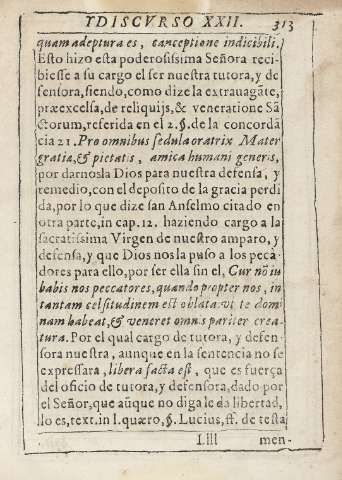 YDISCVRSO XXII. 313
quam adeptura es, conceptione indicibili.
Esto hizo esta poderosissima Señora reci-
biesse a su cargo el ser nuestra tutora, y de
fensora, siendo, como dize la extrauagãte,
præexcelsa, de reliquijs, & veneratione Sã
ctorum, referida en el 2. §. de la concordã
cia 21. Pro omnibus sedula oratrix Mater
gratia, & pietatis, amica humani generis,
por darnosla Dios para nuestra defensa, y
remedio, con el deposito de la gracia perdi
da, por lo que dize san Anselmo citado en
otra parte, in cap. 12. haziendo cargo a la
sacratissima Virgen de nuestro amparo, y
defensa, y que Dios nos la puso a los peca
dores para ello, por ser ella sin el, Cur nõ iu
babis nos peccatores, quando propter nos, in
tantam celsitudinem est oblata. vt te domi
nam habeat, & veneret omnis pariter crea-
tura. Por el qual cargo de tutora, y defen
sora nuestra, aunque en la sentencia no se
expressara, libera facta est, que es fuerça
del oficio de tutora, y defensora, dado por
el Señor, que aũque no diga le da libertad,
lo es, text. in l. quæro, §. Lucius, ff. de testa
Llll men-